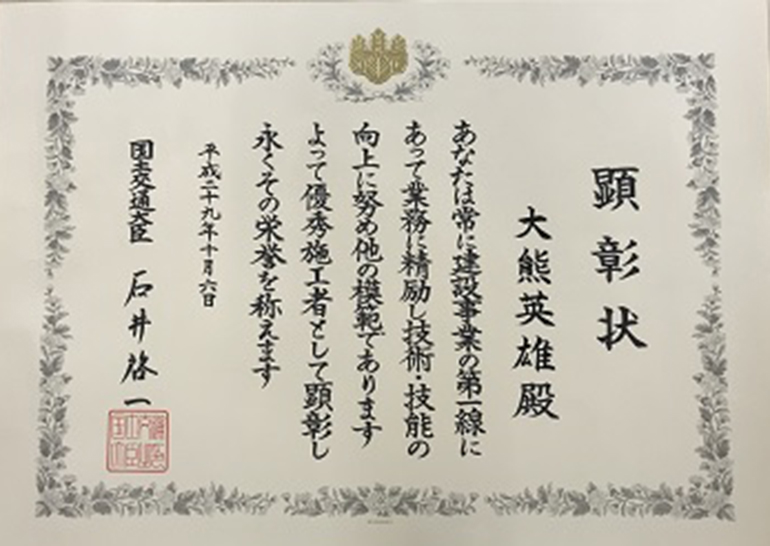 顕彰状
大熊英雄殿
あなたは常に建設事業の第一線に
あって業務に精励し技術・技能の
向上に努め他の模範であります
よって優秀施工者として顕彰し
永くその栄誉を称えます
平成二十九年十月六日
国土交通大臣 石井啓一